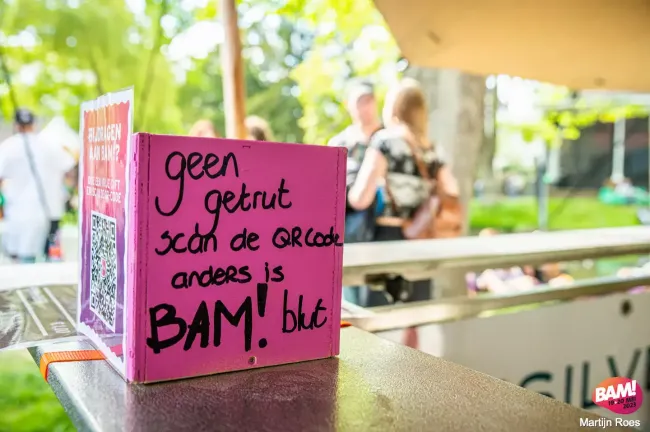 BIJDRAGEN
AAN BAM!?
geen
getrut
scan de QR Code
anders is
BAM! blut
GILV
BAM!
Martijn Roes